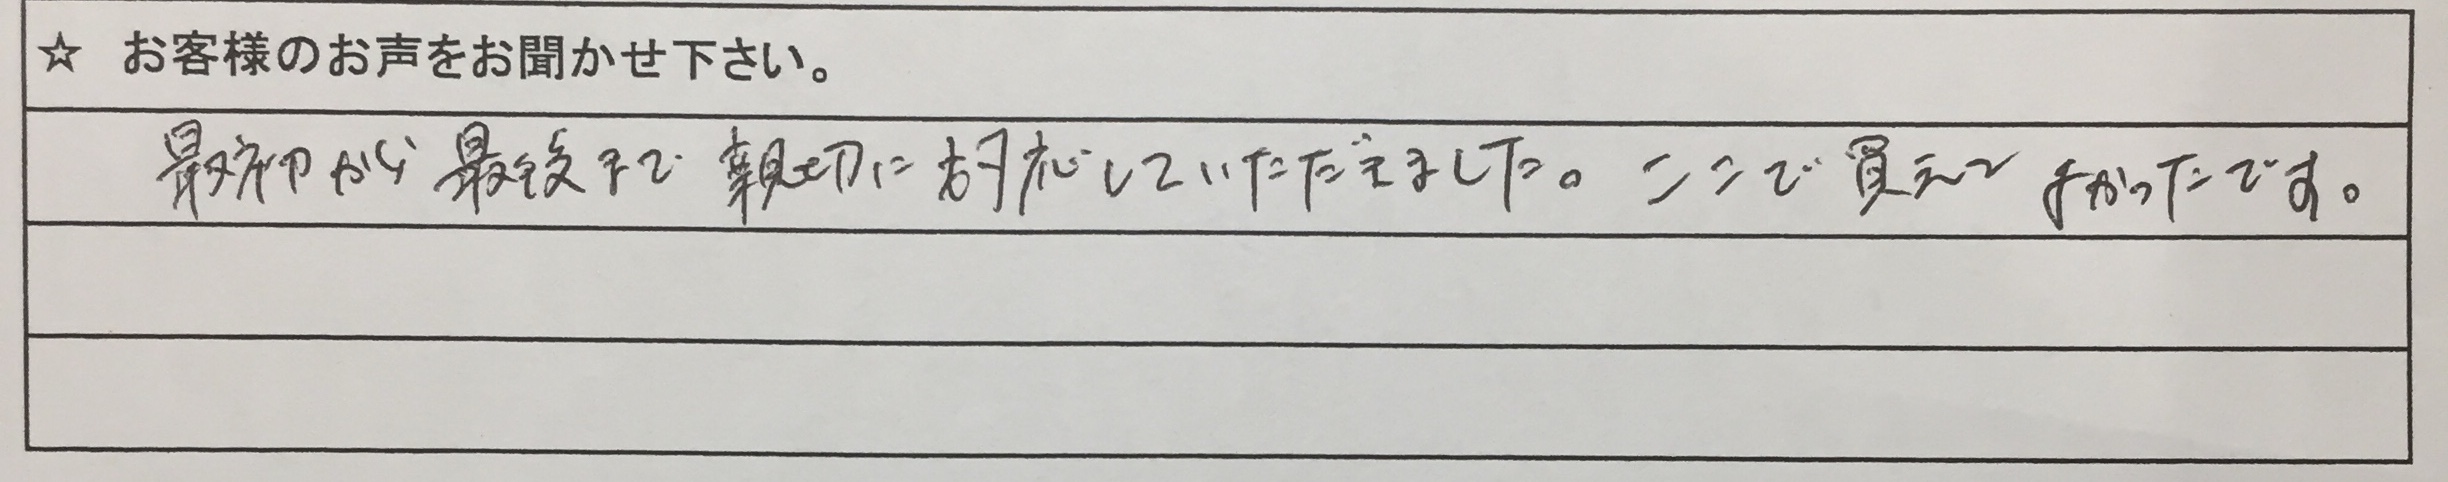 ☆ お客様のお声をお聞かせ下さい。
最初から最後まで親切に対応していただえました。ここで買えてよかったです。